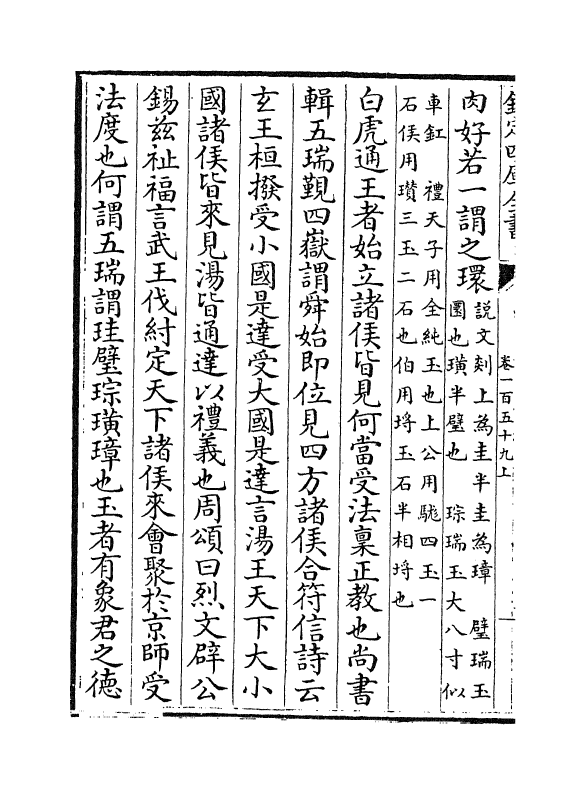 欽定四庫全書
卷一百五十九上
肉好若一謂之環
說文剡上為圭半圭為璋 璧瑞玉
圜也璜半璧也 琮瑞玉大八寸似
車釭 禮天子用全純玉也上公用駹四玉一
石侯用瓚三玉二石也伯用埒玉石半相埒也
白虎通王者始立諸侯皆見何當受法稟正教也尚書
輯五瑞覲四嶽謂舜始即位見四方諸侯合符信詩云
玄王桓撥受小國是達受大國是達言湯王天下大小
國諸侯皆來見湯皆通達以禮義也周頌曰烈文辟公
錫兹祉福言武王伐紂定天下諸侯來會聚於京師受
法度也何謂五瑞謂珪璧琮璜璋也玉者有象君之徳